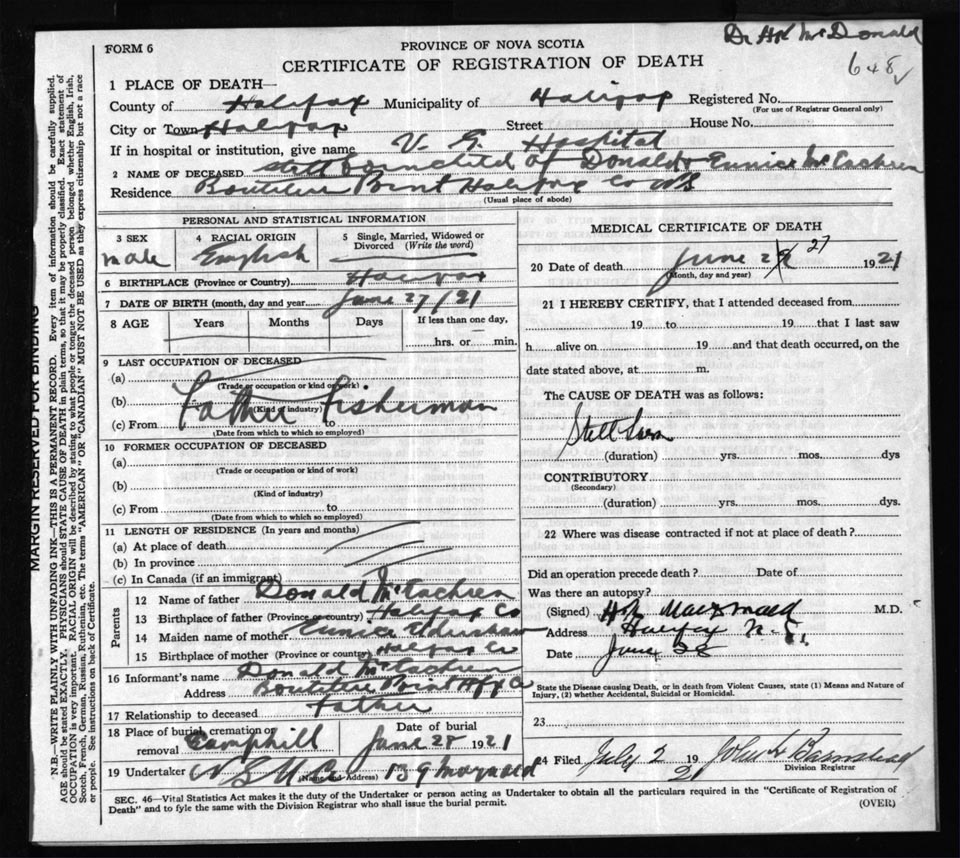 Dr HK McDonald
648
FORM 6
PROVINCE OF NOVA SCOTIA
CERTIFICATE OF REGISTRATION OF DEATH
1 PLACE OF DEATH—
County of Halifax Municipality of Halifax Registered No.
(For use of Registrar General only)
City or Town Halifax Street House No.
If in hospital or institution, give name V. G. Hospital
2 NAME OF DECEASED still born child of Donald & Eunice McEachren
Residence Boutiliers Point Halifax Co NS
(Usual place of abode)
PERSONAL AND STATISTICAL INFORMATION
3 SEX
male
4 RACIAL ORIGIN
English
5 Single, Married, Widowed or
Divorced (Write the word)
6 BIRTHPLACE (Province or Country) Halifax
7 DATE OF BIRTH (month, day and year) June 27/21
8 AGE Years Months Days If less than one day,
hrs. or min.
9 LAST OCCUPATION OF DECEASED
(a)
(Trade or occupation or kind of work)
(b) Father Fisherman
(Kind of industry)
(c) From to
(Date from which to which so employed)
10 FORMER OCCUPATION OF DECEASED
(a)
(Trade or occupation or kind of work)
(b)
(Kind of industry)
(c) From to
(Date from which to which so employed)
11 LENGTH OF RESIDENCE (In years and months)
(a) At place of death
(b) In province
(c) In Canada (if an immigrant)
Parents
12 Name of father Donald McEachren
13 Birthplace of father (Province or country) Halifax Co
14 Maiden name of mother Eunice
15 Birthplace of mother (Province or country) Halifax Co
16 Informant's name Donald McEachren
Address Boutiliers Point Hfx Co
17 Relationship to deceased Father
18 Place of burial, cremation or
removal Camphill
Date of burial
June 28 1921
19 Undertaker N S U Co 139 Maynard
(Name and Address)
MEDICAL CERTIFICATE OF DEATH
20 Date of death June 28 27 1921
(Month, day and year)
21 I HEREBY CERTIFY, that I attended deceased from
19 to 19 that I last saw
h alive on 19 and that death occurred, on the
date stated above, at m.
The CAUSE OF DEATH was as follows:
Still born
(duration) yrs. mos. dys
CONTRIBUTORY
(Secondary)
(duration) yrs. mos. dys.
22 Where was disease contracted if not at place of death?
Did an operation precede death? Date of
Was there an autopsy?
(Signed) HK MacDonald M.D.
Address Halifax N.S.
Date June 28
State the Disease causing Death, or in death from Violent Causes, state (1) Means and Nature of
Injury, (2) whether Accidental, Suicidal or Homicidal.
23
24 Filed July 2 19 21 John H Barnstead
Division Registrar
SEC. 46—Vital Statistics Act makes it the duty of the Undertaker or person acting as Undertaker to obtain all the particulars required in the "Certificate of Registration of
Death" and to fyle the same with the Division Registrar who shall issue the burial permit.
(OVER)
MARGIN RESERVED FOR BINDING
N.B.—WRITE PLAINLY WITH UNFADING INK—THIS IS A PERMANENT RECORD. Every item of information should be carefully supplied.
AGE should be stated EXACTLY. PHYSICIANS should STATE CAUSE OF DEATH in plain terms, so that it may be properly classified. Exact statement of
OCCUPATION is very important. RACIAL ORIGIN will be described by stating to what people or tongue the deceased person belonged whether English, Irish,
Scotch, French, German, Russian, Ruthenian, etc. The terms "AMERICAN" OR "CANADIAN" MUST NOT BE USED as they express citizenship but not a race
or people. See instructions on back of Certificate.